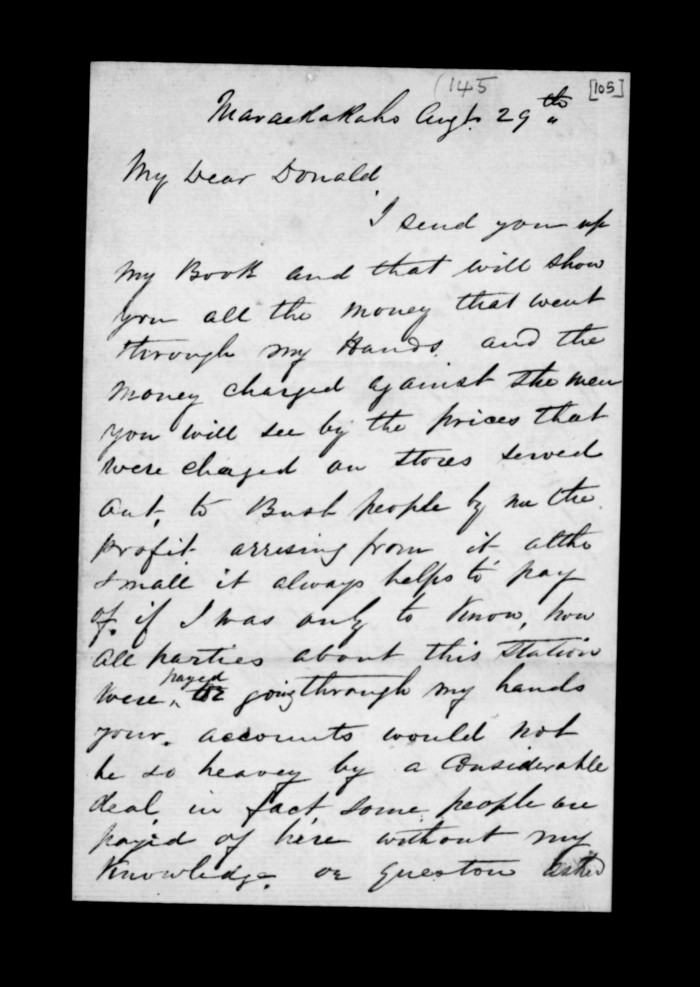 (145
[105]
Maraekakaho Augt 29th
My Dear Donald
I send you up
my Book and that will show
you all the money that went
through my Hands. and the
money charged against the men
you will see by the prices that
were charged on stores served
out, to Bush people by me the
profit arrising from it altho
small it always helps to pay
of. if I was only to know, how
all parties about this station
were, payed going through my hands
your. accounts would not
be so heavey by a Considerable
deal, in fact some people are
payed of here without my
Knowledge. or queston asked